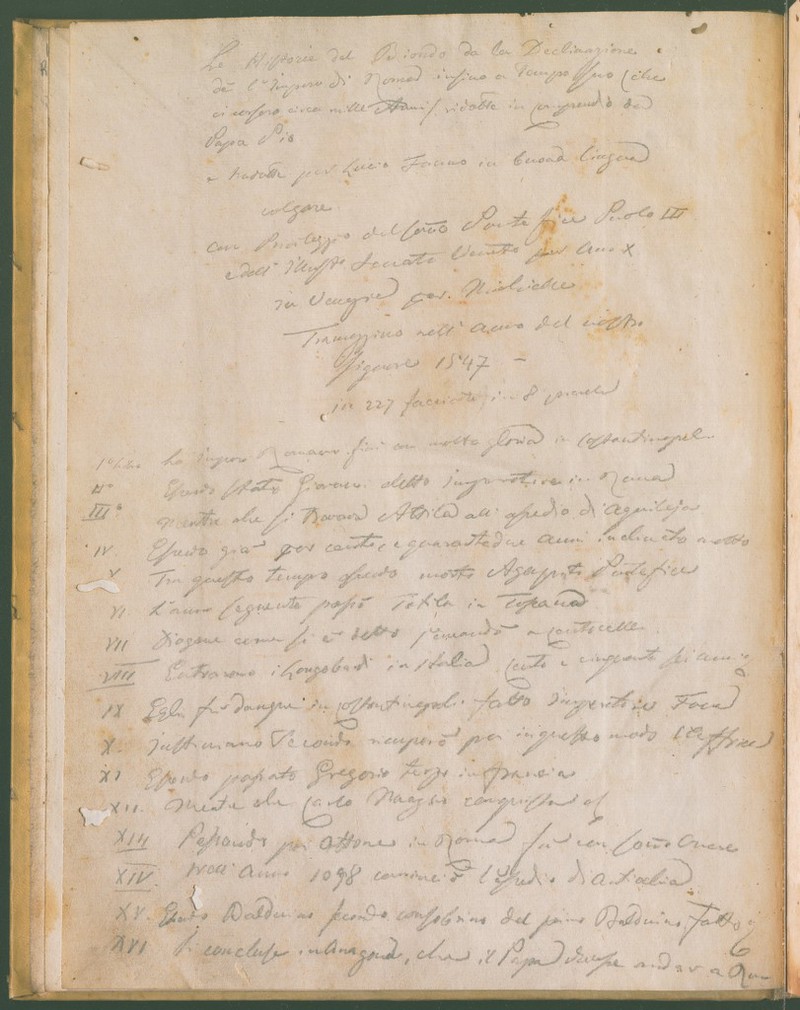 Le Historie del Biondo da la Declinazione
de l'Impero di Roma insino a tempo suo (che
ci corsero circa mille Anni) ridotte in compendio da
Papa Pio
e tradotte per Lucio Fauno in buona lingua
volgare
con Privilegio del sommo Pontefice Paolo III
e dell' Illustro Senato Veneto per anni X
in Venezia per Michiele
Tramezzino nell' anno del nostro
Signore 1547 –
in 227 facciate in 8
Lo Impero Romano finì con molta gloria in Costantinopol
II° Essendo stato Giovanni detto Imperatore in Roma
III° Mentre che si trovava Attila all' assedio di Aquileja
IV. Essendo già per cento, e quarantadue anni inclinato
V Tra questo tempo essendo morto Agapito Pontefice
VI L'anno seguente passò Totila in Toscana
VII come si è detto a Centocelle
VIII Entrarono i Longobardi in Italia cento e cinquanta sei anni
IX Egli fu dunque in Costantinopoli fatto Imperatore Foca
X. Justiniano Secondo ricuperò poi in questo modo l'Affrica
XI Essendo passato Gregorio terzo in Francia
XII. Mentre che Carlo Magno
XIII Passando poi Ottone in Roma fu con sommo onore
XIV. Nell' Anno 1098 cominciò l'assedio di Antiochia
XV. Essendo Balduino secondo consobrino del primo Balduino, fatto
XVI Si concluse in Anagni, che il Papa dovesse andar a